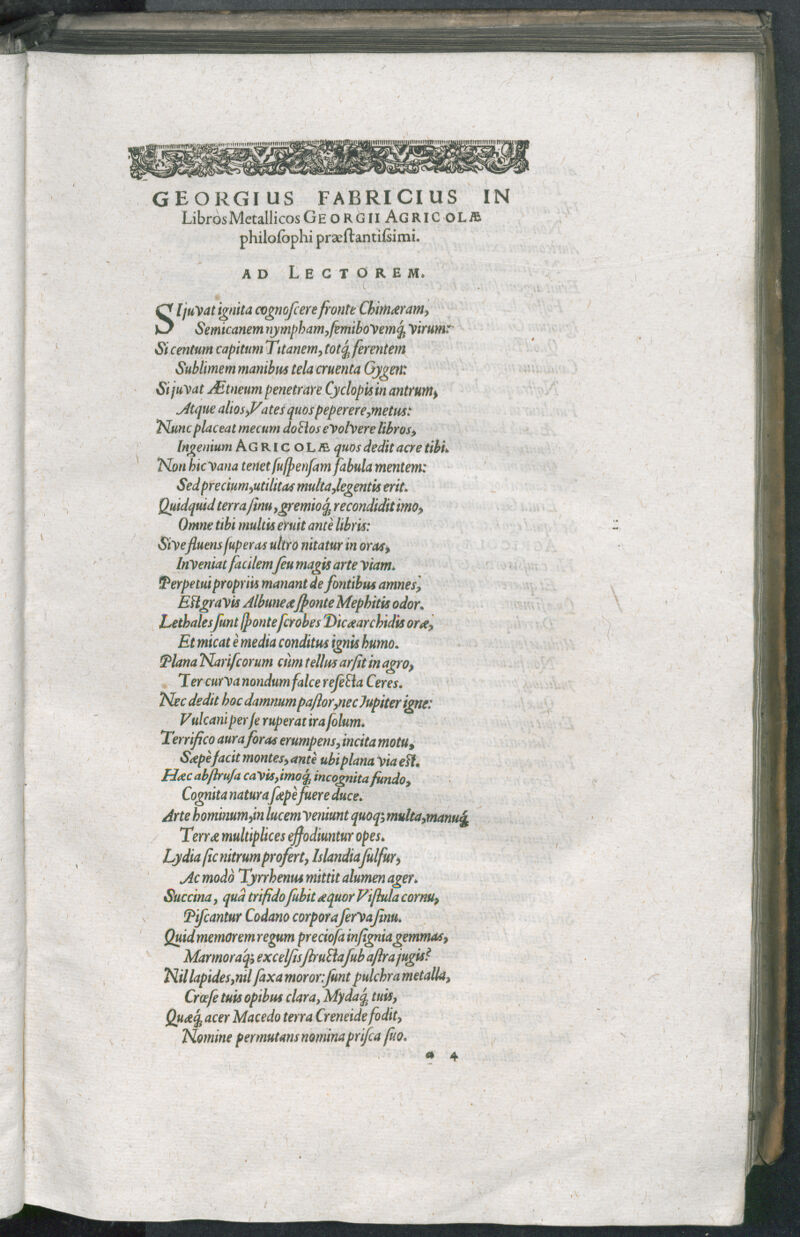 GEORGIUS FABRICIUS IN
Libros Metallicos GEORGII AGRICOLÆ
philoſophi præſtantiſsimi.
AD LECTOREM.
SI juvat ignita cognoſcere fronte Chimæram,
Semicanem nympham, ſemibovemq́; virum:
Si centum capitum Titanem, totq́; ferentem
Sublimem manibus tela cruenta Gygen:
Si juvat Ætneum penetrare Cyclopis in antrum,
Atque alios, Vates quos peperere, metus:
Nunc placeat mecum doctos evolvere libros,
Ingenium AGRICOLÆ quos dedit acre tibi.
Non hic vana tenet ſuſpenſam fabula mentem:
Sed precium, utilitas multa, legentis erit.
Quidquid terra ſinu, gremioq́; recondidit imo,
Omne tibi multis eruit antè libris:
Sive fluens ſuperas ultro nitatur in oras,
Inveniat facilem ſeu magis arte viam.
Perpetui propriis manant de fontibus amnes,
Eſt gravis Albuneæ ſponte Mephitis odor.
Lethales ſunt ſponte ſcrobes Dicæarchidis oræ,
Et micat è media conditus ignis humo.
Plana Nariſcorum cùm tellus arſit in agro,
Ter curva nondum falce reſecta Ceres.
Nec dedit hoc damnum paſtor, nec Jupiter igne:
Vulcani per ſe ruperat ira ſolum.
Terrifico aura foras erumpens, incita motu,
Sæpè facit montes, antè ubi plana via eſt.
Hæc abſtruſa cavis, imoq́; incognita fundo,
Cognita natura ſæpè fuere duce.
Arte hominum, in lucem veniunt quoq; multa, manuq́;
Terræ multiplices effodiuntur opes.
Lydia ſic nitrum profert, Islandia ſulfur,
Ac modò Tyrrhenus mittit alumen ager.
Succina, quâ trifido ſubit æquor Viſtula cornu,
Piſcantur Codano corpora ſerva ſinu.
Quid memorem regum precioſa inſignia gemmas,
Marmoraq́; excelſis ſtructa ſub aſtra jugis?
Nil lapides, nil ſaxa moror: ſunt pulchra metalla,
Crœſe tuis opibus clara, Mydaq́; tuis,
Quæq́; acer Macedo terra Creneide fodit,
Nomine permutans nomina priſca ſuo.
a 4